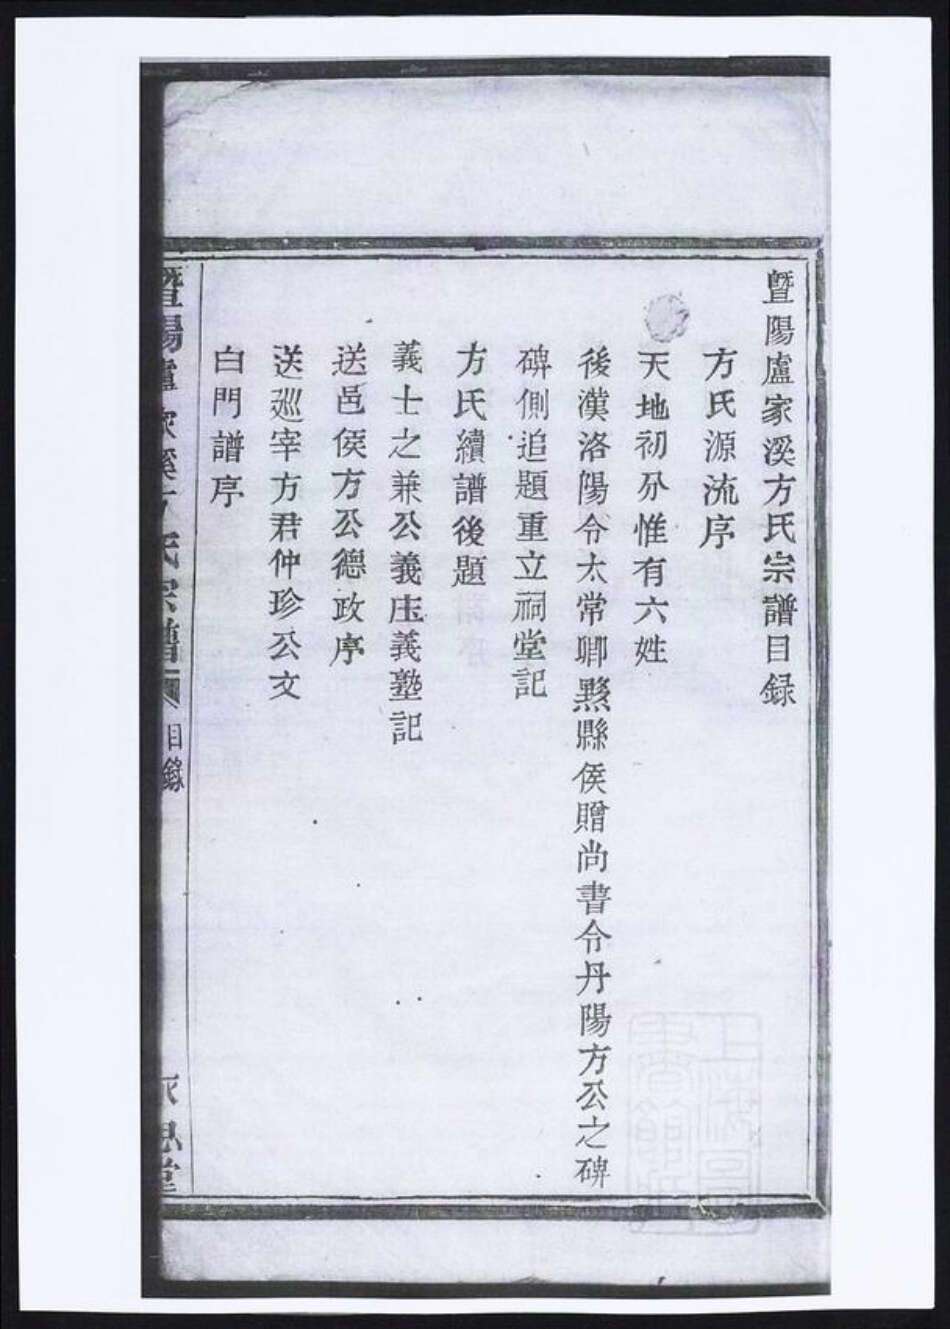 暨陽盧家溪方氏宗譜目録
方氏源流序
天地初分惟有六姓
後漢洛陽令太常卿黟縣侯贈尚書令丹陽方公之碑
碑側追題重立祠堂記
方氏續譜後題
義士之兼公義庄義塾記
送邑侯方公德政序
送巡宰方君仲珍公文
白門譜序
暨陽盧家溪方氏宗譜
目錄
思堂